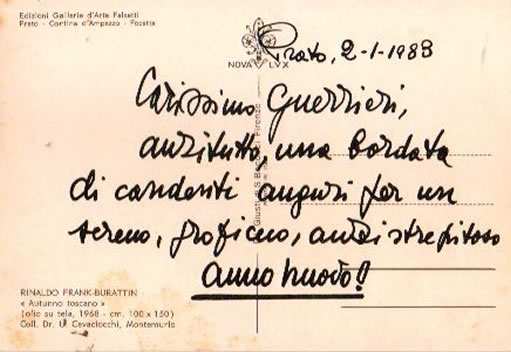 Edizioni Gallerie d'Arte Falsetti
Prato - Cortina d'Ampezzo - Focette
NOVA LVX
Prato, 2-1-1983
Carissimo Guerrieri,
anzitutto, una bordata
di candenti auguri per un
sereno, proficuo, anzi strepitoso
anno nuovo!
RINALDO FRANK-BURATTIN
« Autunno toscano »
(olio su tela, 1968 - cm. 100 x 150)
Coll. Dr. U. Cavaciocchi, Montemurlo